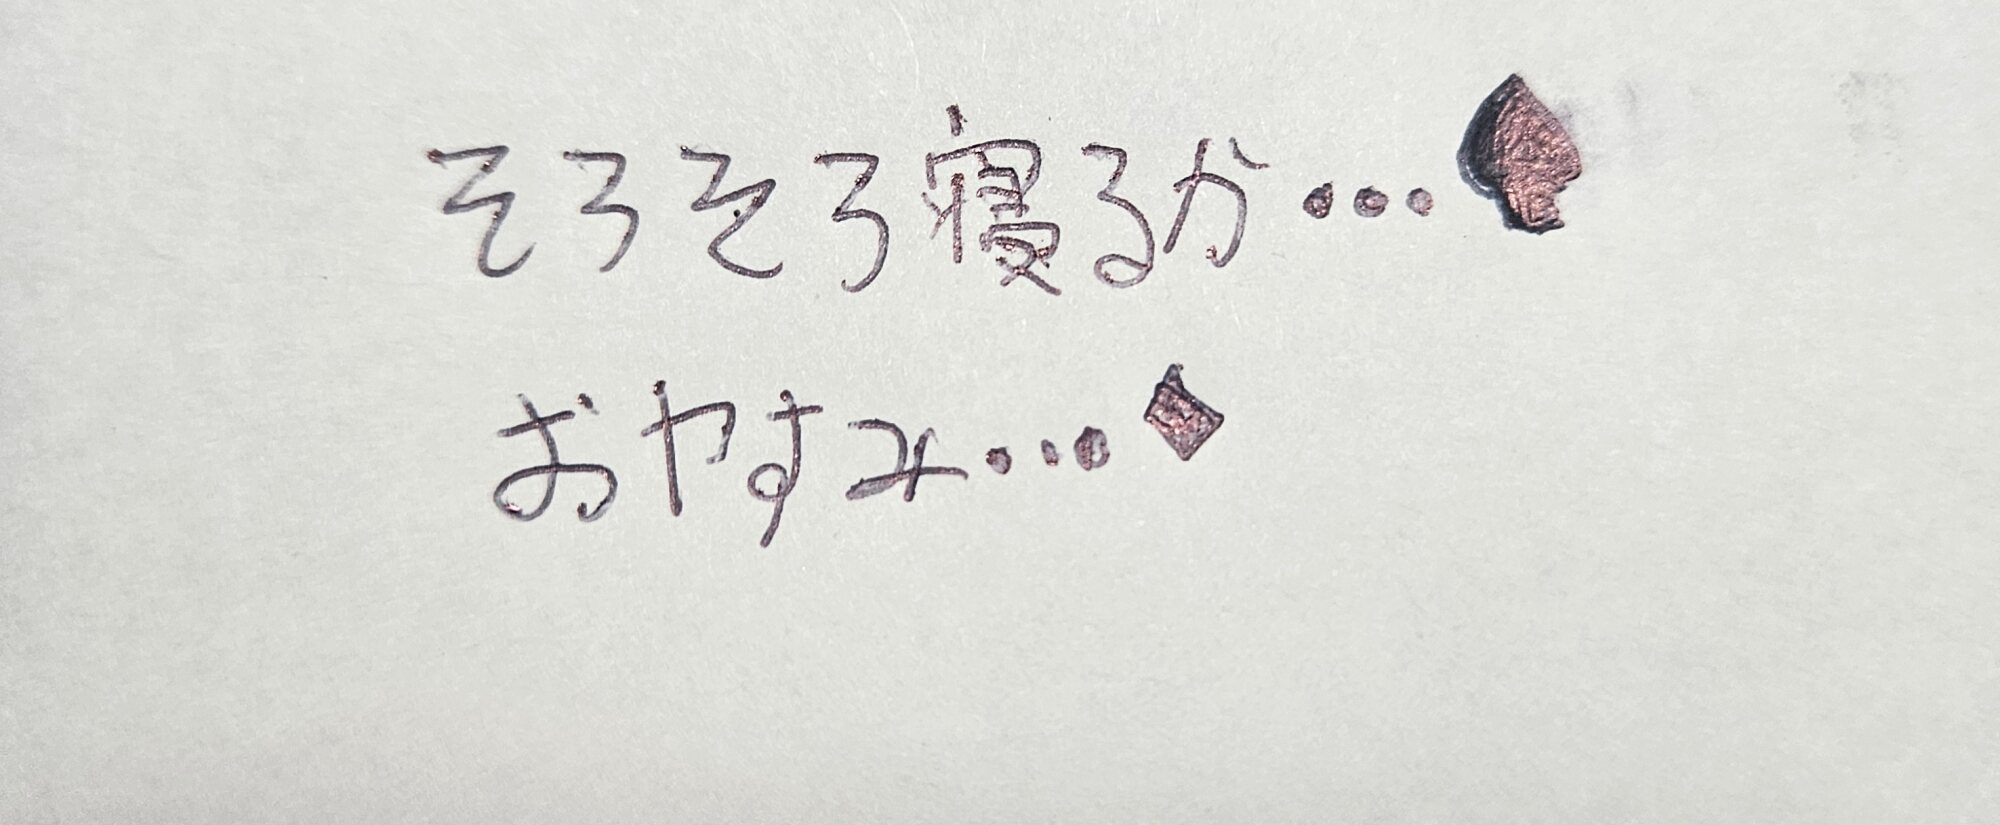 そろそろ寝るか…♠
おやすみ…♦